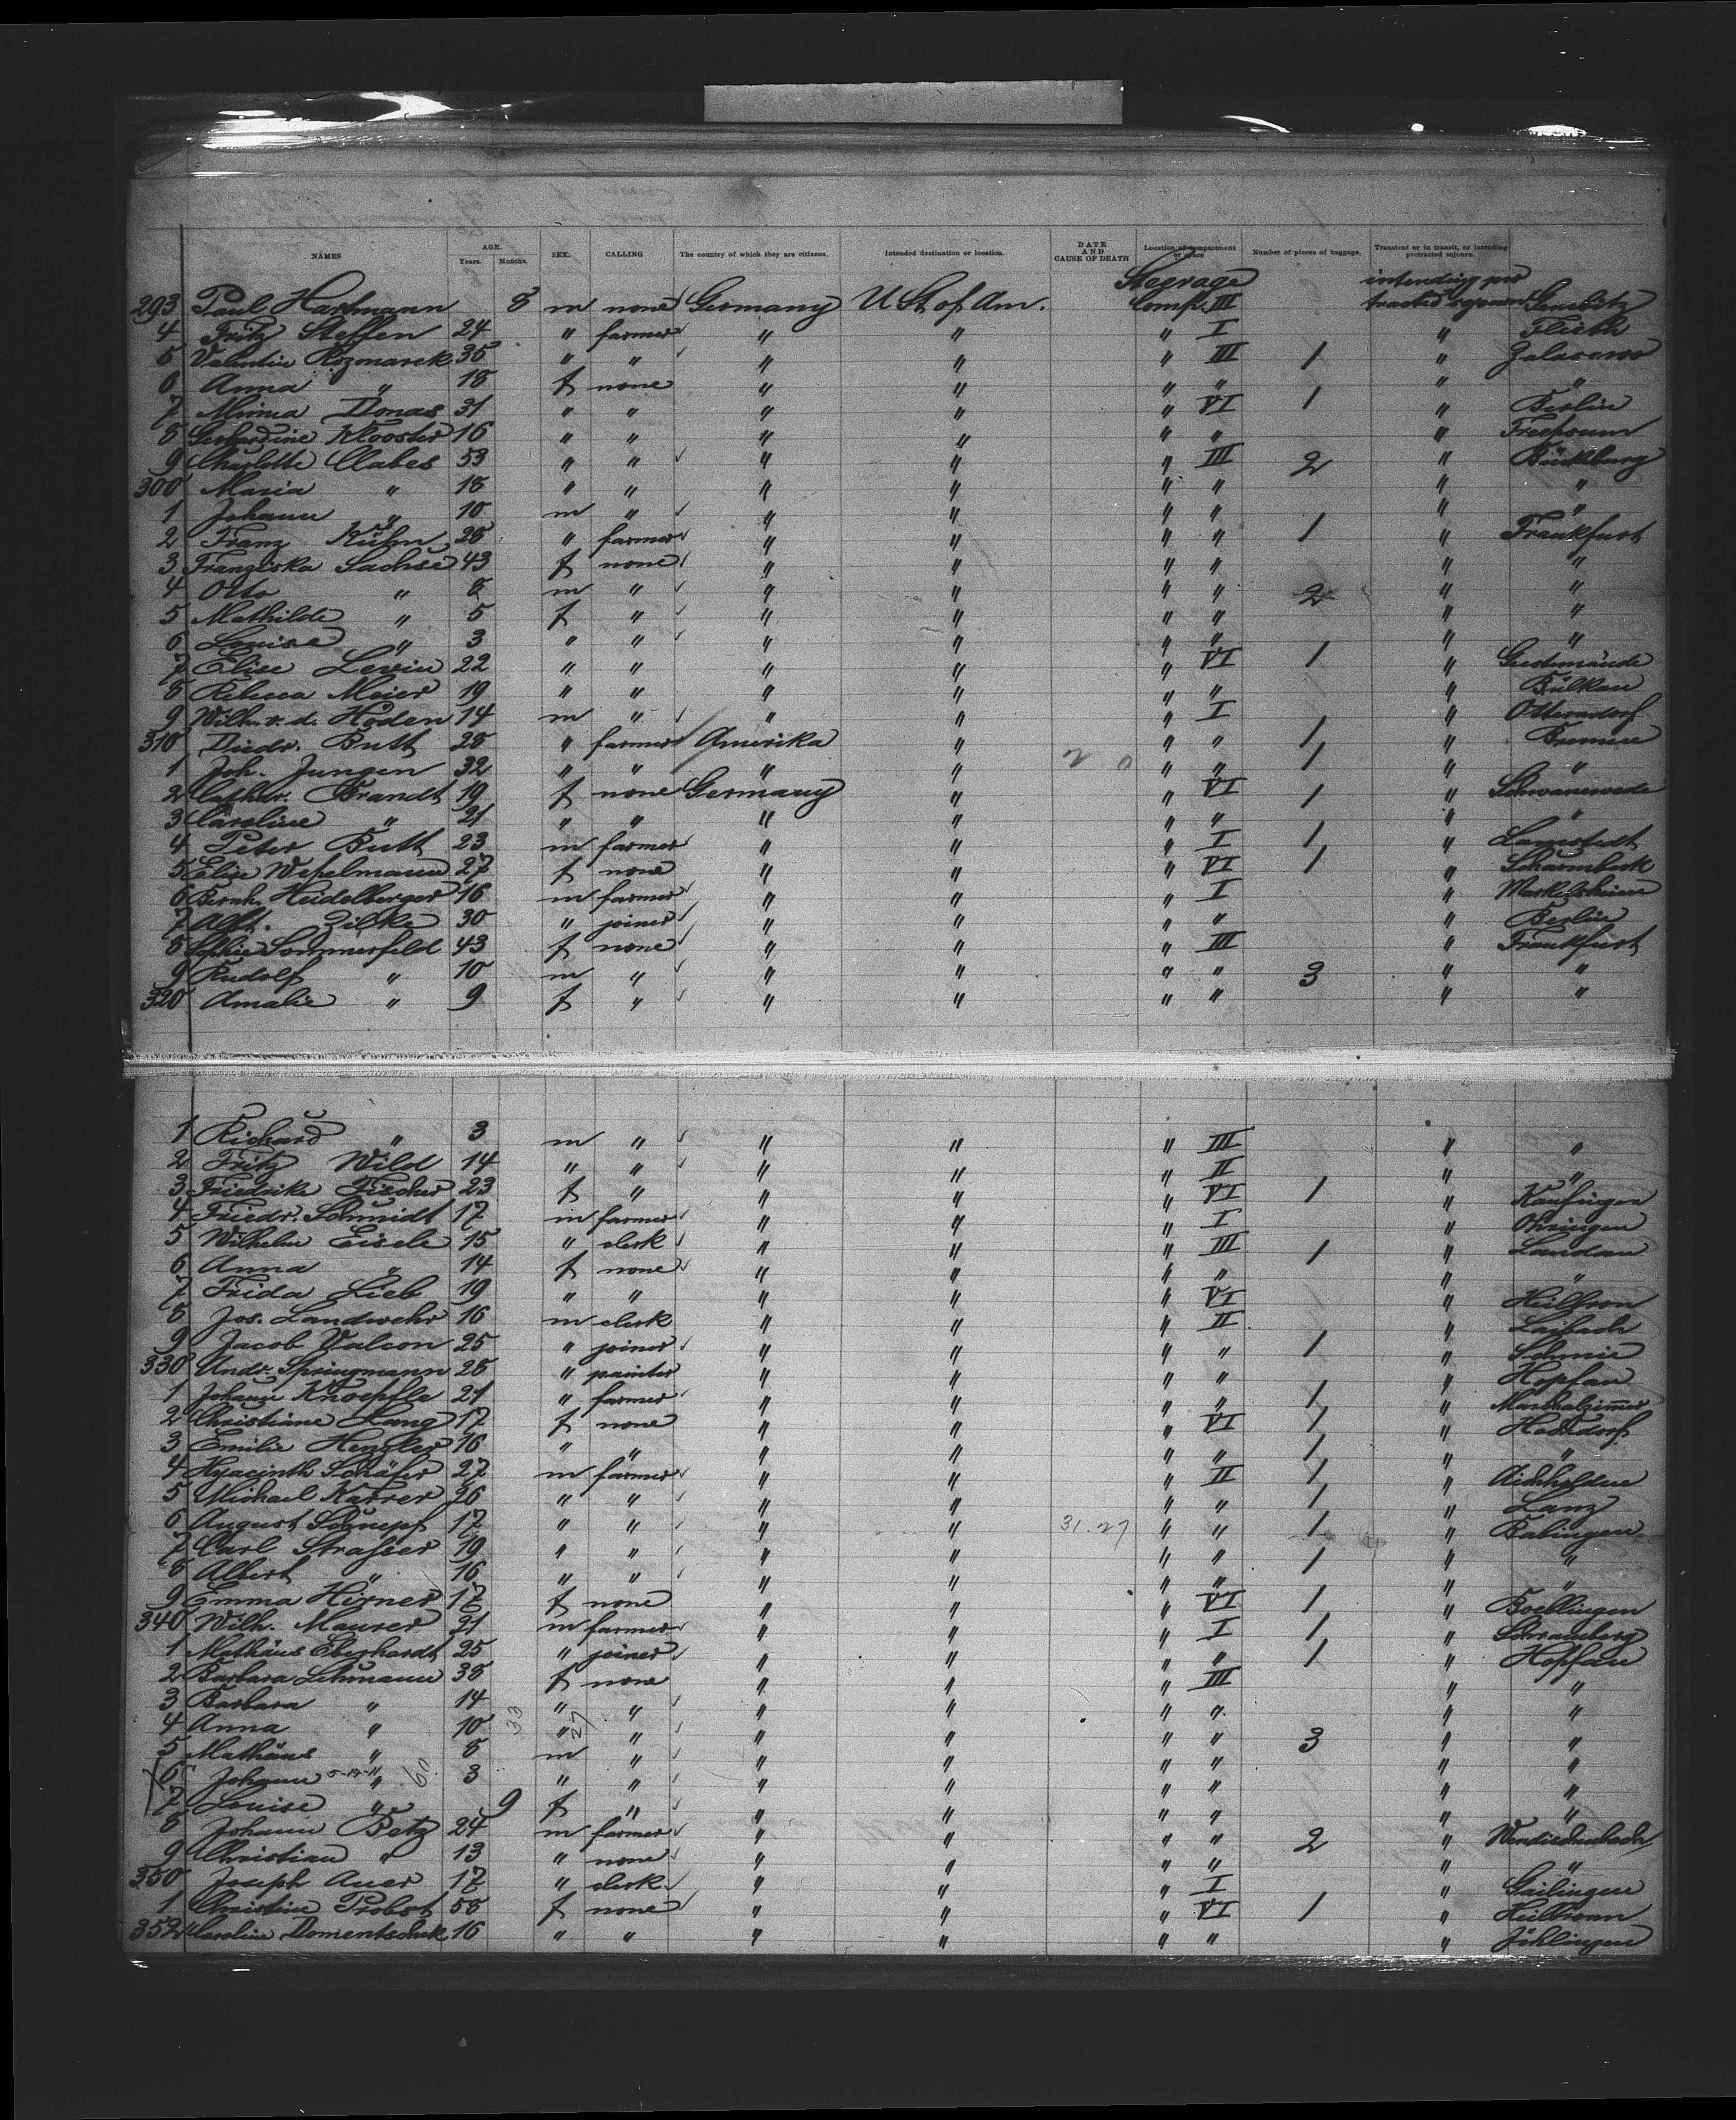 NAMES AGE. Years. Months. SEX. CALLING The country of which they are citizens. Intended destination or location. DATE AND CAUSE OF DEATH Location of compartment or space Number of pieces of baggage. Transient or in transit, or intending protracted sojourn.
293 Paul Hartmann 8 m none Germany U St of Am. Steerage Compt. III intending pro tracted sojourn
4 Fritz Steffen 24 " farmer " " " I " Flieth
5 Valentin Kozmarek 35 " " " " " III 1 "
6 Anna " 18 f none " " " " " "
7 Minna Donas 31 " " " " " VI 1 " Berlin
8 Gerhardine Klooster 16 " " " " " " " Freepsum
9 Charlotte Clabes 53 " " " " " III 2 " Bückburg
300 Maria " 18 " " " " " " " "
1 Johann " 10 m " " " " " " "
2 Franz Kühn 28 " farmer " " " " 1 " Frankfurt
3 Franziska Sachse 43 f none " " " " " "
4 Otto " 8 m " " " " " 2 " "
5 Mathilde " 5 f " " " " " " "
6 Louise " 3 " " " " " " " "
7 Elise Levin 22 " " " " " VI 1 " Geestemünde
8 Rebecca Meier 19 " " " " " " " Bülkau
9 Wilh. v. d. Hoden 14 m " " " " I " Otterndorf
310 Diedr. Butt 28 " farmer Amerika " " " 1 " Bremen
1 Joh. Jungen 32 " " " " 2 0 " " 1 " "
2 Cathar. Brandt 19 f none Germany " " VI 1 " Schwanewede
3 Caroline " 21 " " " " " " " "
4 Peter Butt 23 m farmer " " " I 1 " Lamstedt
5 Elise Weselmann 27 f none " " " VI 1 " Scharmbeck
6 Bernh. Heidelberger 16 m farmer " " " I " Markelsheim
7 Albt. Zilke 30 " joiner " " " " " Berlin
8 Sophie Sommerfeld 43 f none " " " III " Frankfurt
9 Rudolf " 10 m " " " " " 3 " "
320 Amalie " 9 f " " " " " " "
1 Richard " 3 m " " " " III " "
2 Fritz Wild 14 " " " " " II " "
3 Friedrike Fischer 23 f " " " " VI 1 "
4 Friedr. Schmidt 17 m farmer " " " I " Öhringen
5 Wilhelm Eisele 15 " clerk " " " III 1 " Landau
6 Anna " 14 f none " " " " " "
7 Frida Lieb 19 " " " " " VI " Heilbron
8 Jos. Landwehr 16 m clerk " " " II " Laibach
9 Jacob Valcon 25 " joiner " " " " 1 "
330 Andr. Springmann 28 " painter " " " " " Hopfau
1 Johann Knoepfle 21 " farmer " " " " 1 " Marschalzimmer
2 Christiane Lang 17 f none " " " VI 1 "
3 Emilie Henzler 16 " " " " " " 1 " "
4 Hyacinth Schäfer 27 m farmer " " " II 1 " Aichhalden
5 Michael Karrer 26 " " " " " " 1 " Lanz
6 August Schnepf 17 " " " " 31.27 " " 1 " Balingen
7 Carl Strasser 19 " " " " " " 1 " "
8 Albert " 16 " " " " " " " "
9 Emma Hirner 17 f none " " " VI 1 " Boeblingen
340 Wilh. Maurer 21 m farmer " " " I 1 " Schramberg
1 Mathäus Eberhardt 25 " joiner " " " " 1 " Hopfau
2 Barbara Lehmann 38 f none " " " III " "
3 Barbara " 14 " " " " " " " "
4 Anna " 10 33 " 27 " " " " " 3 " "
5 Mathäus " 8 m " " " " " " "
6 Johann " 60 3 " " " " " " " "
7 Louise " 9 f " " " " " " "
8 Johann Betz 24 m farmer " " " " 2 "
9 Christian " 13 " none " " " " " "
350 Joseph Auer 17 " clerk " " " I " Gailingen
1 Christine Probst 58 f none " " " VI 1 " Heilbronn
352 Caroline Domentschek 16 " " " " " " " Jöhlingen